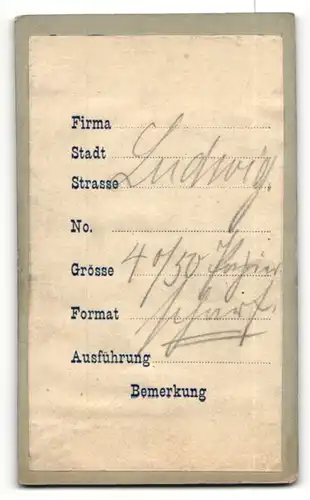 Firma
Stadt Ludwig
Strasse
No.
Grösse 40/50 Papier
Format scharf.
Ausführung
Bemerkung